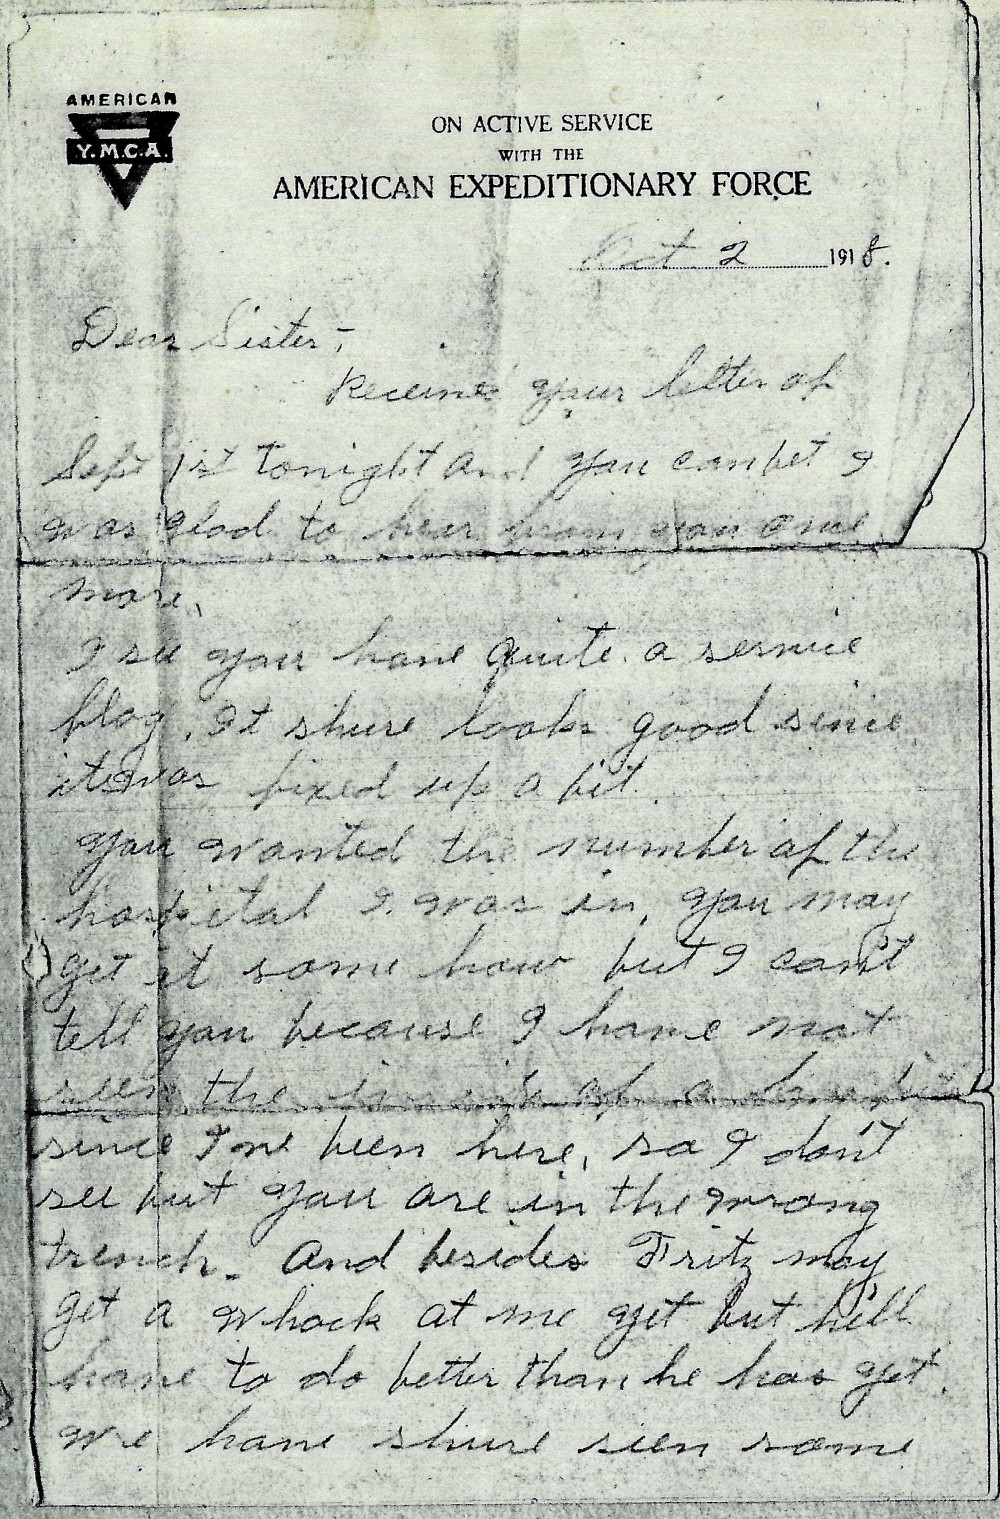 AMERICAN
Y.M.C.A.
ON ACTIVE SERVICE
WITH THE
AMERICAN EXPEDITIONARY FORCE
Oct 2 1918.
Dear Sister,-
Received your letter of
Sept 1st tonight and you can bet I
was glad to hear from you once
more.
I see you have quite a service
flag. It shure looks good since
it was fixed up a bit.
You wanted the number of the
hospital I was in, you may
get it some how but I can't
tell you because I have not
seen the inside of a hospital
since I've been here, so I don't
see but you are in the wrong
trench. And besides Fritz may
get a whack at me yet but he'll
have to do better than he has yet.
We have shure seen some